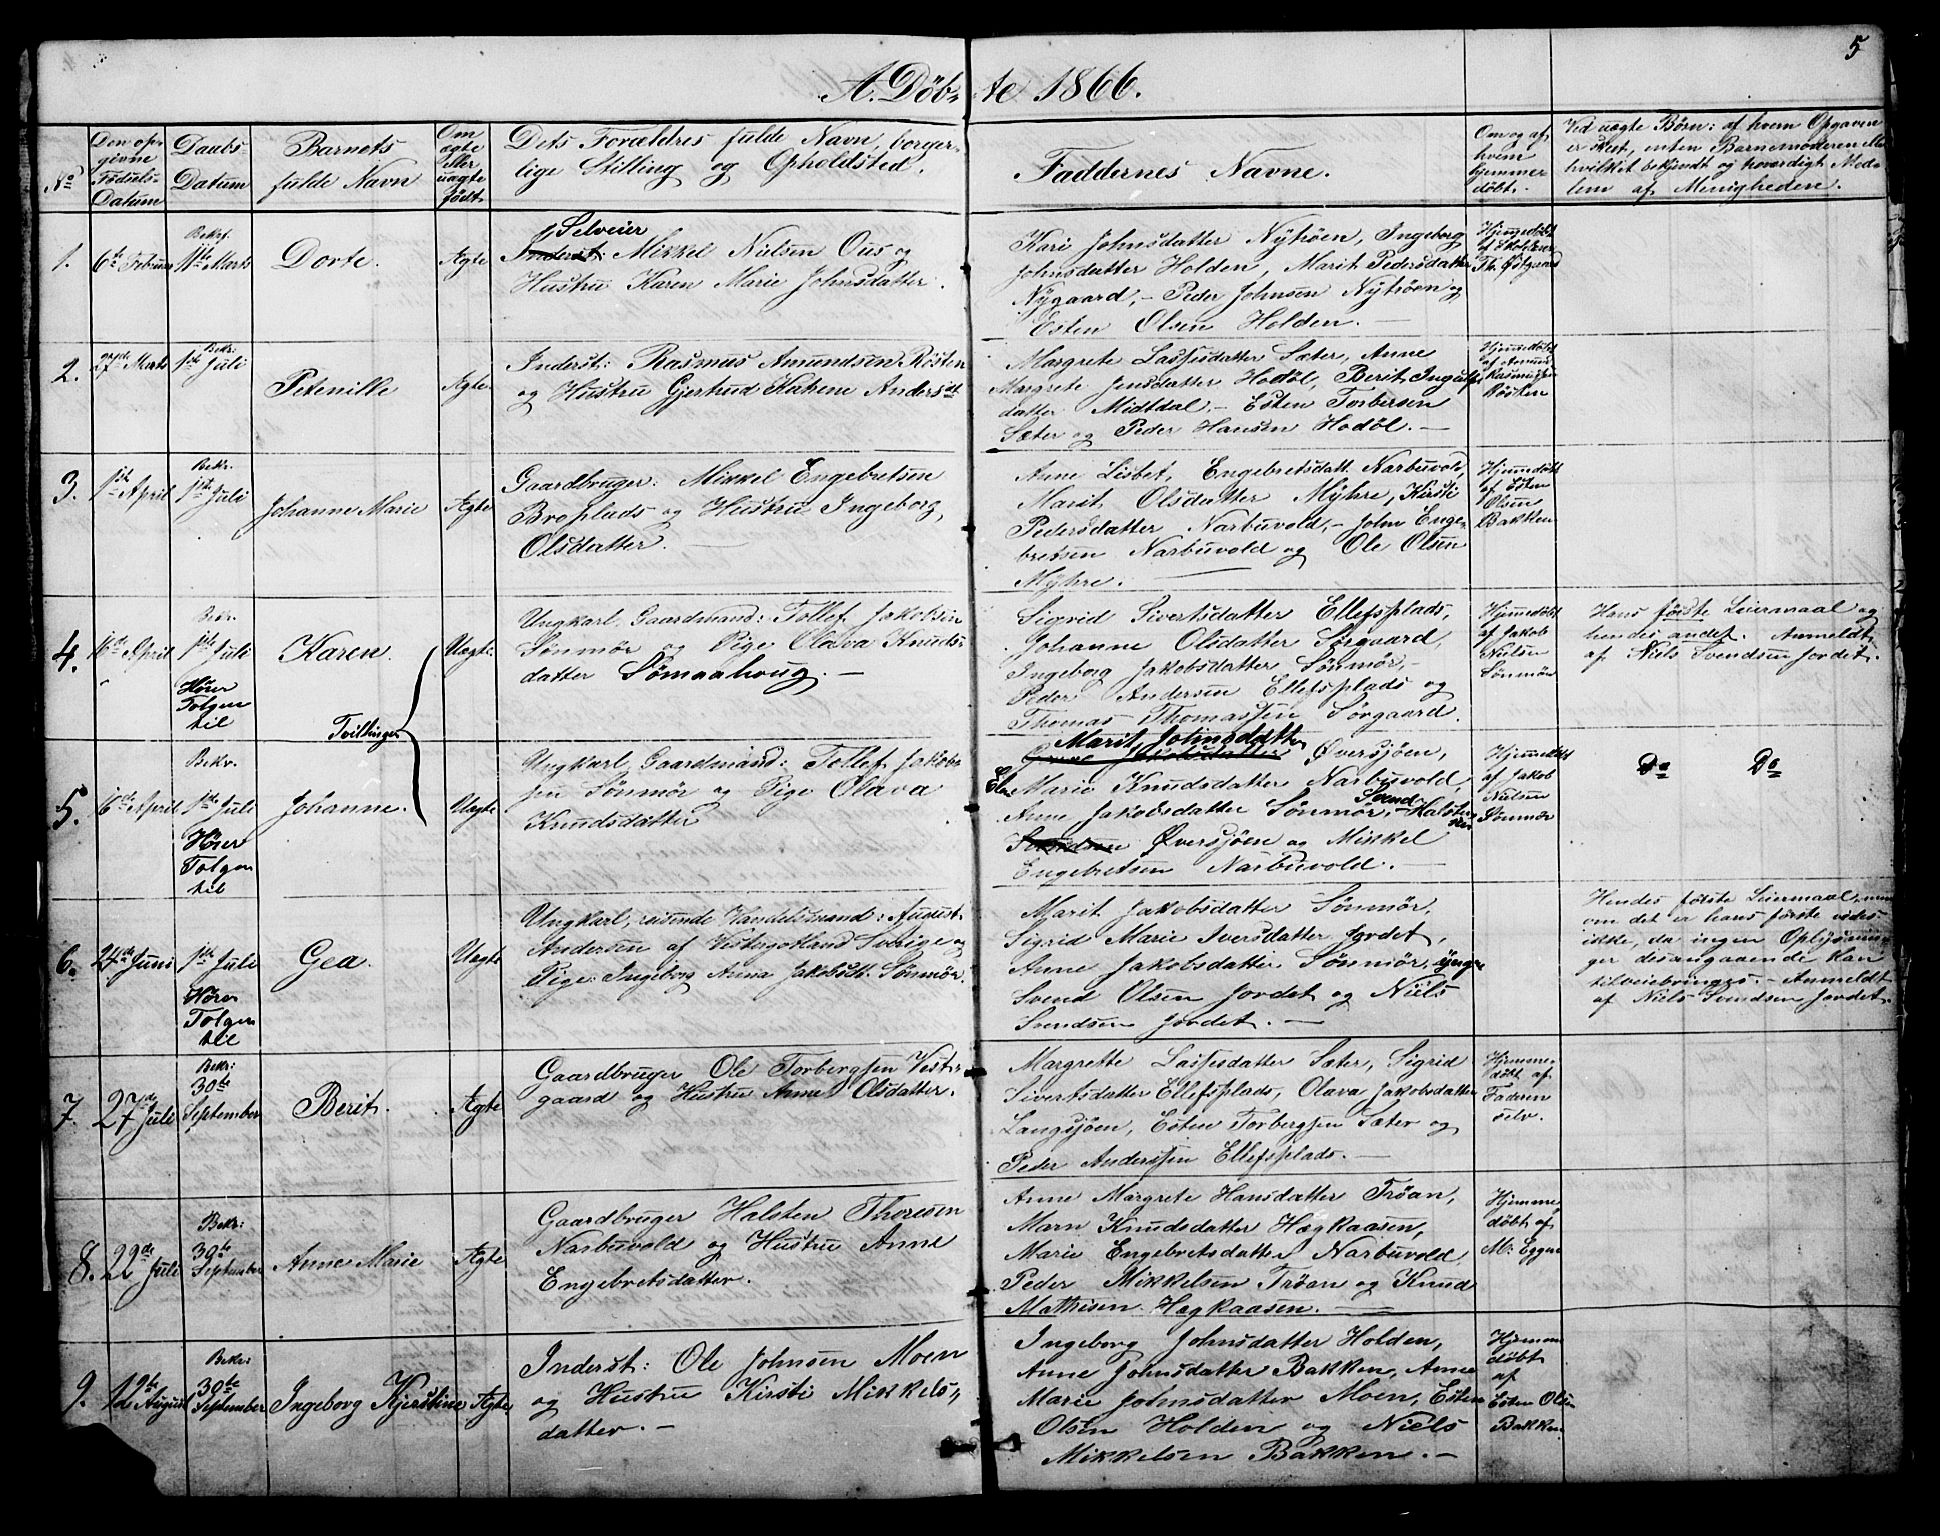 5
A. Döbte 1866.
No
Den op-
givne
Födsels-
Datum
Daabs-
Datum
Barnets
fulde Navn
Om
ægte
eller
uægte
födt
Dets Forældres fulde Navn, borger-
lige Stilling og Opholdsted.
Faddernes Navne.
Om og af
hvem
hjemme
döbt.
Ved uægte Börn: af hvem Opgaven
er skeet, enten Barnemoderen
hvilket bekjendt og troværdigt Med-
lem af Menigheden.
1.
6te Februar
Bekr.
11te Marts
Dorte.
Ægte
Selveier
Inderst: Mikkel Nielsen Ous og
Hustru Karen Marie Johnsdatter.
Kari Johnsdatter Nytröen, Ingeborg
Johnsdatter Holden, Marit Pedersdatter
Nygaard, - Peder Johnsen Nytröen og
Esten Olsen Holden. -
Hjemmedöbt
af Skolelærer
Th. Östgaard
2.
27de Marts
Bekr:
1ste Juli
Petenille
Ægte
Inderst: Rasmus Amundsen Rösten
og Hustru Gjertrud Kathrine Andersdt
Margrete Lassesdatter Sæter, Anne
Margrete Jensdatter Hodöl, Berit Ingulfs
datter Midtdal, - Esten Torbersen
Sæter og Peder Hansen Hodöl. -
Hjemmedöbt
af Amund
Rasmussen
Rösten
3.
1ste April
Bekr.
1ste Juli
Johanne Marie
Ægte
Gaardbruger: Mikkel Engebretsen
Broplads og Hustru Ingeborg
Olsdatter. -
Anne Lisbet, Engebretsdatt. Narbuvold,
Marit Olsdatter Myhre, Kirsti
Pedersdatter Narbuvold, - John Enge-
bretsen Narbuvold og Ole Olsen
Myhre. -
Hjemmedöbt
af Esten
Olsen
Bakken
4.
16de April
Bekr.
1ste Juli
Hörer
Tolgen
til
Karen.
Tvillinger
Uægte
Ungkarl, Gaardmand: Tollef Jakobsen
Sönmör og Pige Olava Knuds-
datter Sömaahoug. -
Sigrid Sivertsdatter Ellefsplads,
Johanne Olsdatter Sörgaard,
Ingeborg Jakobsdatter Sönmör, -
Peder Andersen Ellefsplads og
Thomas Thomassen Sörgaard.
Hjemmedöbt
af Jakob
Nielsen
Sönmör
Hans förste Leiermaal og
hendes andet. Anmeldt
af Niels Svendsen Jordet.
5.
16de April
Bekr.
1ste Juli
Hörer
Tolgen
til
Johanne.
Uægte
Ungkarl, Gaardmand: Tollef Jakob-
sen Sönmör og Pige Olava
Knudsdatter
Marit Johnsdatter
Översjöen,
Elen Marie Knudsdatter Narbuvold,
Anne Jakobsdatter Sönmör, - Svend Halsten-
sen
Svendsen Översjöen og Mikkel
Engebretsen Narbuvold. -
Hjemmedöbt
af Jakob
Nielsen
Sönmör
Do Do
6.
24de Juni
1ste Juli
Hörer
Tolgen
til
Gea.
Uægte
Ungkarl, reisende Handelsmand: August
Andersen af Vestergotland Sverige og
Pige: Ingeborg Anna Jakobsdt. Sönmör.
Marit Jakobsdatter Sönmör,
Sigrid Marie Iversdatter Jordet,
Anne Jakobsdatter Sönmör, yngre
Svend Olsen Jordet og Niels
Svendsen Jordet. -
Hendes förste Leiermaal, men
om det er hans förste vides
ikke, da ingen Oplysnin-
ger desangaaende kan
tilveiebringes. - Anmeldt
af Niels Svendsen Jordet.
7.
27de Juli
Bekr:
30te
September
Berit.
Ægte
Gaardbruger Ole Torbergsen Vest-
gaard og Hustru Anne Olsdatter.
Margrette Lassesdatter Sæter, Sigrid
Sivertsdatter Ellefsplads, Olava Jakobsdatter
Langsjöen, Esten Torbergsen Sæter og
Peder Anderssen Ellefsplads. -
Hjemme-
döbt af
Faderen
selv.
8.
22de Juli
Bekr:
30te
September
Anne Marie
Ægte
Gaardbruger Halsten Thoresen
Narbuvold og Hustru Anne
Engebretsdatter.
Anne Margrete Hansdatter Tröan,
Marn Knudsdatter Hægkaasen,
Marie Engebretsdatter Narbuvold
Peder Mikkelsen Tröan og Knud
Mathisen Hægkaasen. -
Hjemme
döbt af
M. Eggen
9.
12te August
Bekr:
30te
September
Ingeborg Kjerstine
Ægte.
Inderst: Ole Johnsen Moen
og Hustru Kirsti Mikkels-
datter. -
Ingeborg Johnsdatter Holden,
Anne Johnsdatter Bakken, Anne
Marie Johnsdatter Moen, Esten
Olsen Holden og Niels
Mikkelsen Bakken. -
Hjemme
döbt
af
Esten Olsen
Bakken